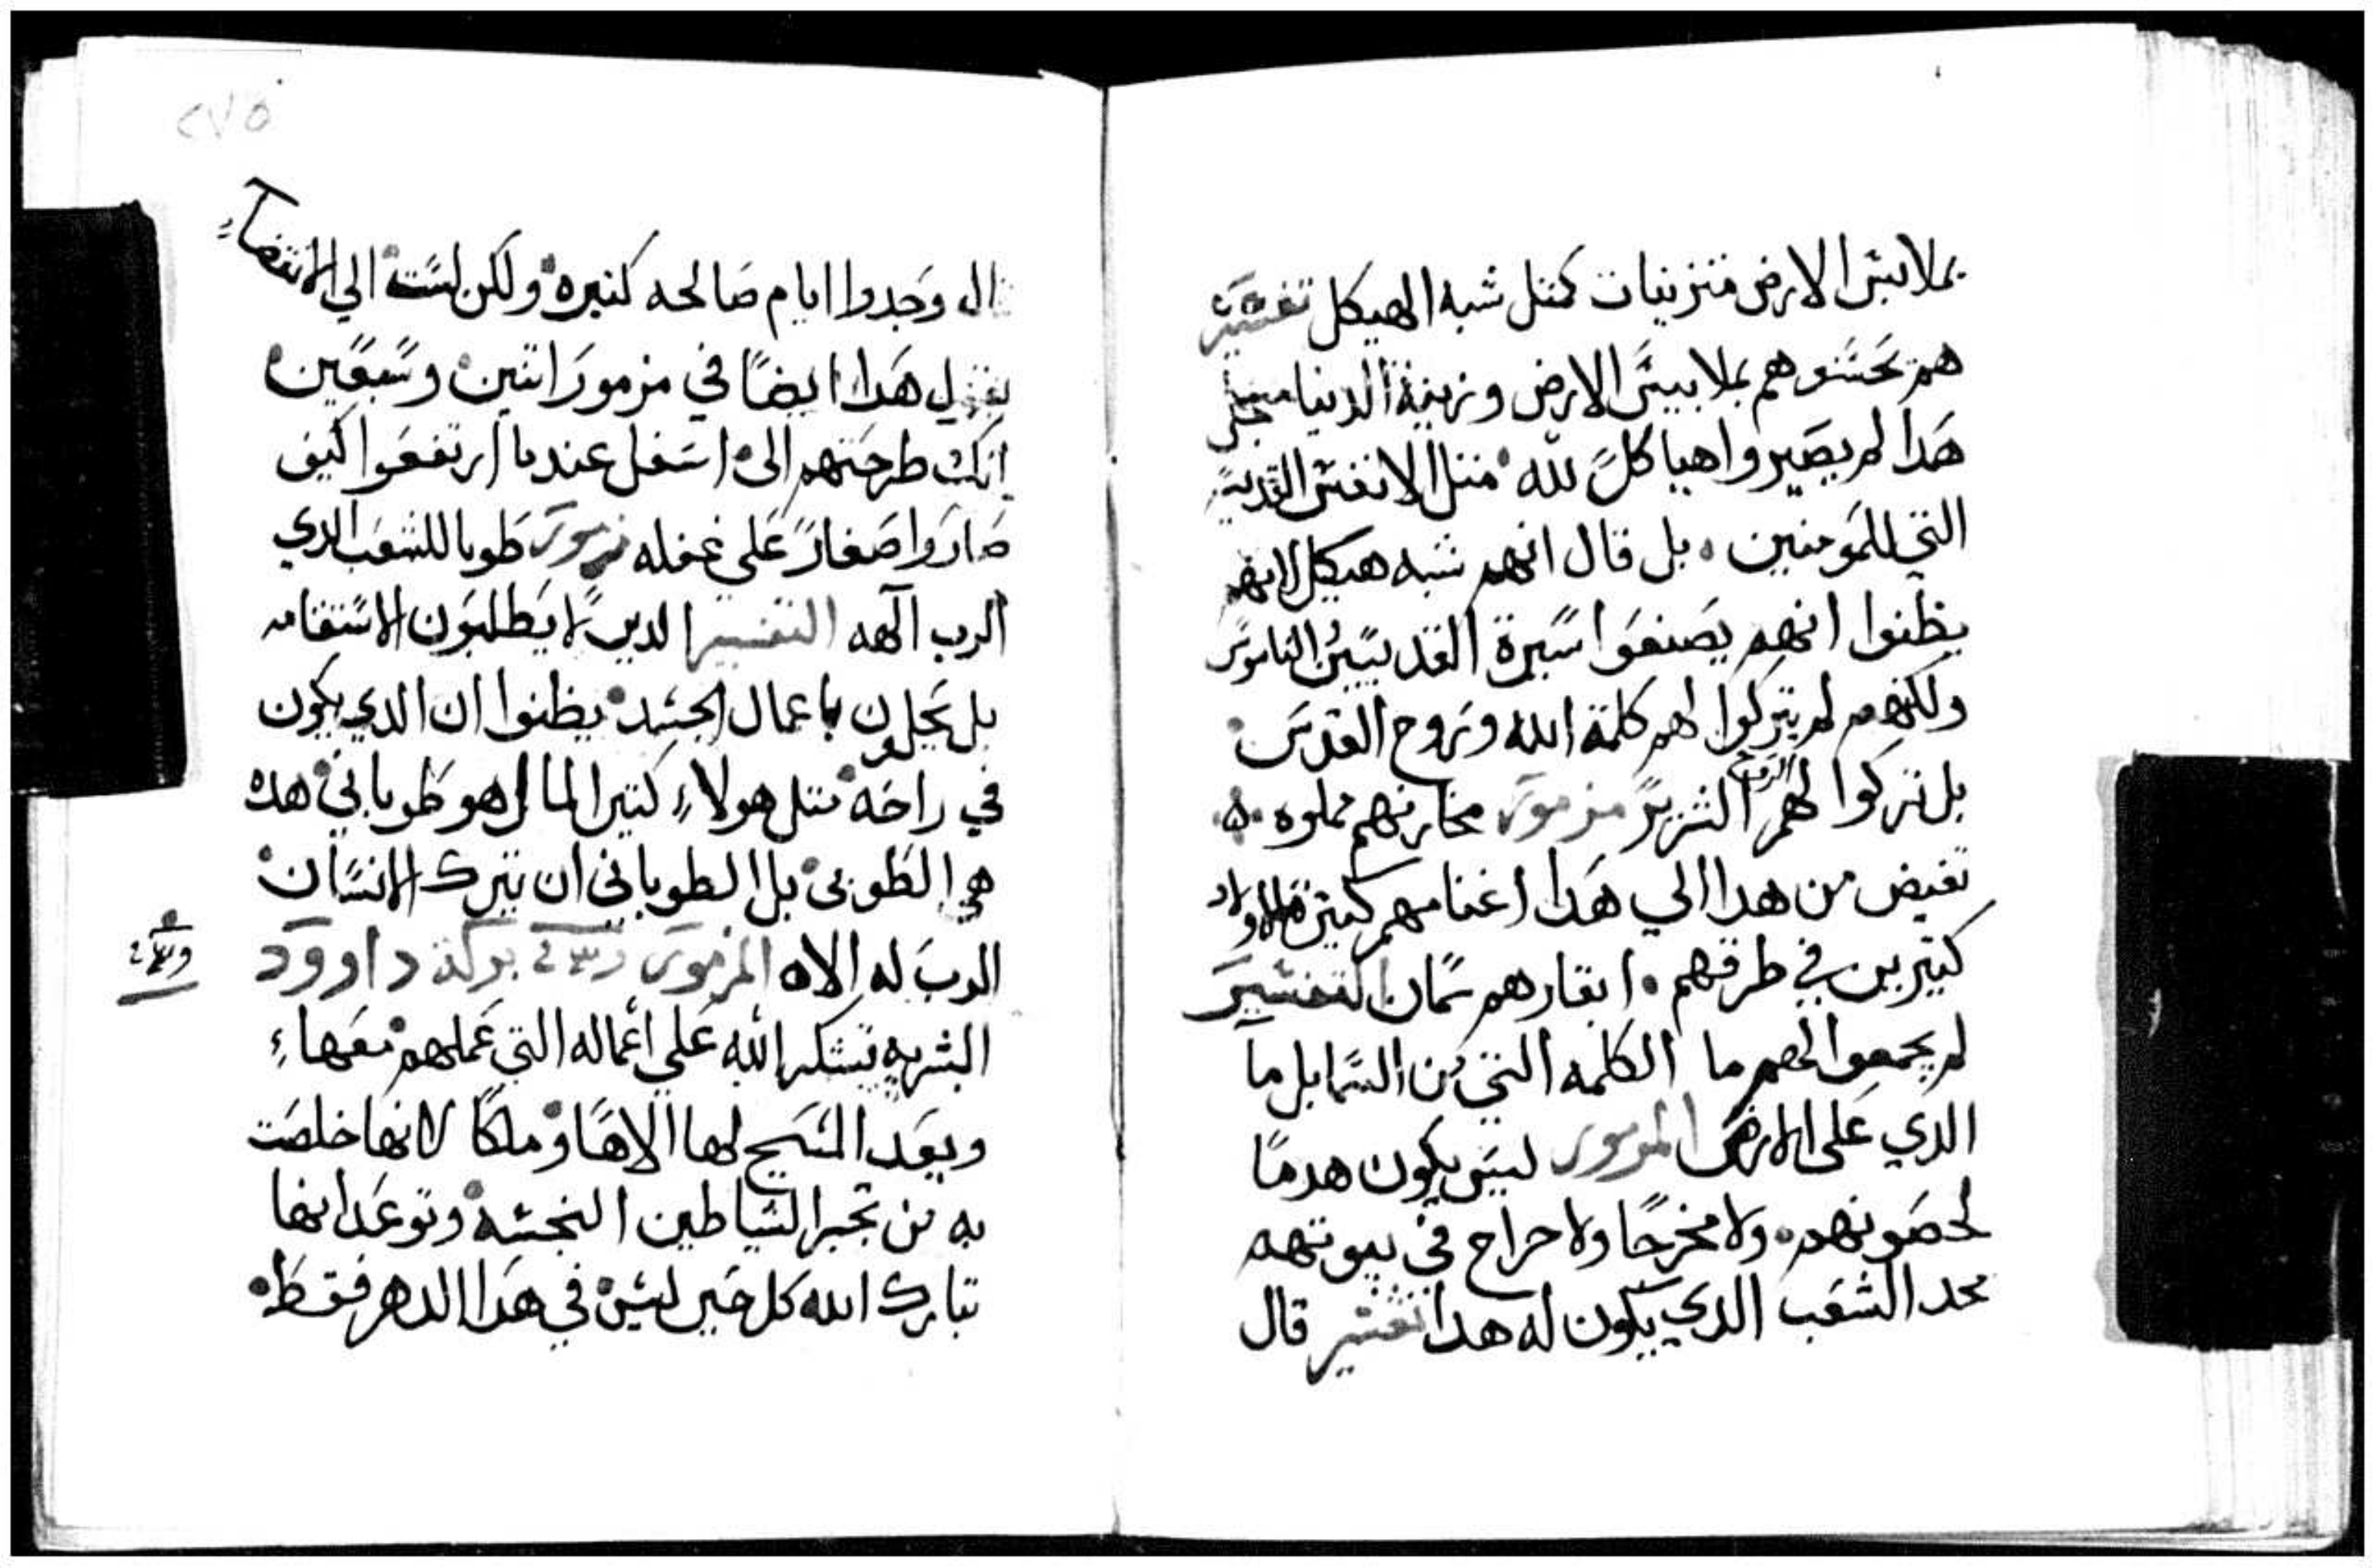 بملابس الارض متزينات كمتل شبه الهيكل تفسير
هم تحسنوهم بملابيس الارض وزينة الدنيا من اجل
هدا لم يصيروا هياكل لله متل الانفس القديسة
التي للمومنين . بل قال انهم شبه هيكل لانهم
يظنوا انهم يصنعوا سيرة القديسين الناموس
ولكنهم لم يتركوا لهم كلمة الله وروح القدس
بل تركوا لهم الروح الشرير مزمور مخازنهم مملوه .ه.
تفيض من هدا الي هدا اغنامهم كتيرة الاولاد
كتيرين في طرقهم . ابقارهم سمان التفسير
لم يجمعوا لهم ما الكلمه التي من السما بل ما
الدي على الارض المزمور ليس يكون هدمًا
لحصونهم . ولا مخرجًا ولا حراج في بيوتهم
مجد الشعب الدي يكون له هدا تفسير قال
٢٧٥
وجدوا ايام صالحه كتيره ولكن ليست الي الانقضاء
هدا ايضًا في مزمور اتنين وسبعين
انك طرحتهم الى اسفل عندما ارتفعوا كيف
صاروا صغار على غفله مزمور طوبا للشعب الدي
الرب آلهه التفسير الدين لا يطلبون الاستقامه
بل يحلون باعمال الجسد يظنوا ان الدي يكون
في راحه متل هولاء كتير المال هو طوباني هده
هي الطوبى بل الطوباني ان يترك الانسان
الرب له الاه المزمور بركة داوود
البشريه تشكر الله على اعماله التي عملهم معها
ويعد المسيح لها الاهًا وملكًا لانها خلصت
به من تجبر الشياطين النجسه وتوعد انها
تبارك الله كل حين ليس في هدا الدهر فقط